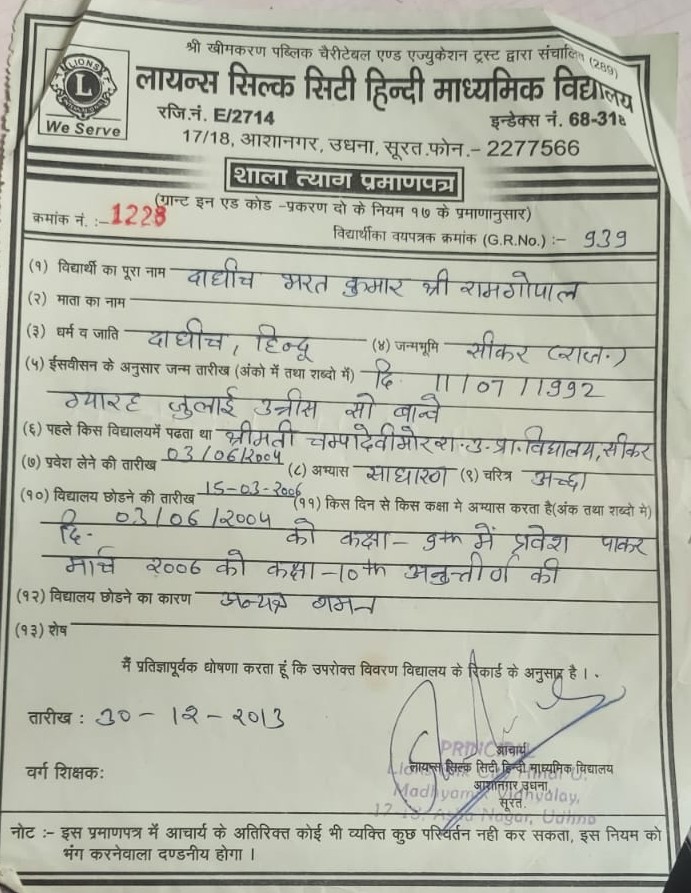 श्री खीमकरण पब्लिक चैरीटेबल एण्ड एज्युकेशन ट्रस्ट द्वारा संचालित (289)
LIONS
L
INTERNATIONAL
We Serve
लायन्स सिल्क सिटी हिन्दी माध्यमिक विद्यालय
रजि.नं. E/2714 इन्डेक्स नं. 68-318
17/18, आशानगर, उधना, सूरत.फोन.- 2277566
शाला त्याग प्रमाणपत्र
(ग्रान्ट इन एड कोड -प्रकरण दो के नियम १७ के प्रमाणानुसार)
क्रमांक नं. :- 1228
विद्यार्थीका वयपत्रक क्रमांक (G.R.No.) :- 939
(१) विद्यार्थी का पूरा नाम दाधीच भरत कुमार श्री रामगोपाल
(२) माता का नाम
(३) धर्म व जाति दाधीच, हिन्दू (४) जन्मभूमि सीकर (राज.)
(५) ईसवीसन के अनुसार जन्म तारीख (अंको में तथा शब्दो में) दि. 11/07/1992
ग्यारह जुलाई उन्नीस सो बान्वे
(६) पहले किस विद्यालयमें पढता था श्रीमती चम्पादेवी मोर रा.उ.प्रा.विद्यालय,सीकर
(७) प्रवेश लेने की तारीख 03/06/2004 (८) अभ्यास साधारण (९) चरित्र अच्छा
(१०) विद्यालय छोडने की तारीख 15-03-2006 (११) किस दिन से किस कक्षा मे अभ्यास करता है(अंक तथा शब्दो मे)
दि. 03/06/2004 को कक्षा - 9th में प्रवेश पाकर
मार्च 2006 को कक्षा -10th अनुत्तीर्ण की
(१२) विद्यालय छोडने का कारण अन्यत्र गमन
(१३) शेष
मैं प्रतिज्ञापूर्वक घोषणा करता हूं कि उपरोक्त विवरण विद्यालय के रिकार्ड के अनुसार है ।
तारीख : 30-12-2013
PRINCIPAL
आचार्य
वर्ग शिक्षकः
लायन्स सिल्क सिटी हिन्दी माध्यमिक विद्यालय
आशानगर उधना,
सूरत.
Madhyamik Vidhyalay,
Nagar, Udhna
नोट :- इस प्रमाणपत्र में आचार्य के अतिरिक्त कोई भी व्यक्ति कुछ परिवर्तन नही कर सकता, इस नियम को
भंग करनेवाला दण्डनीय होगा ।